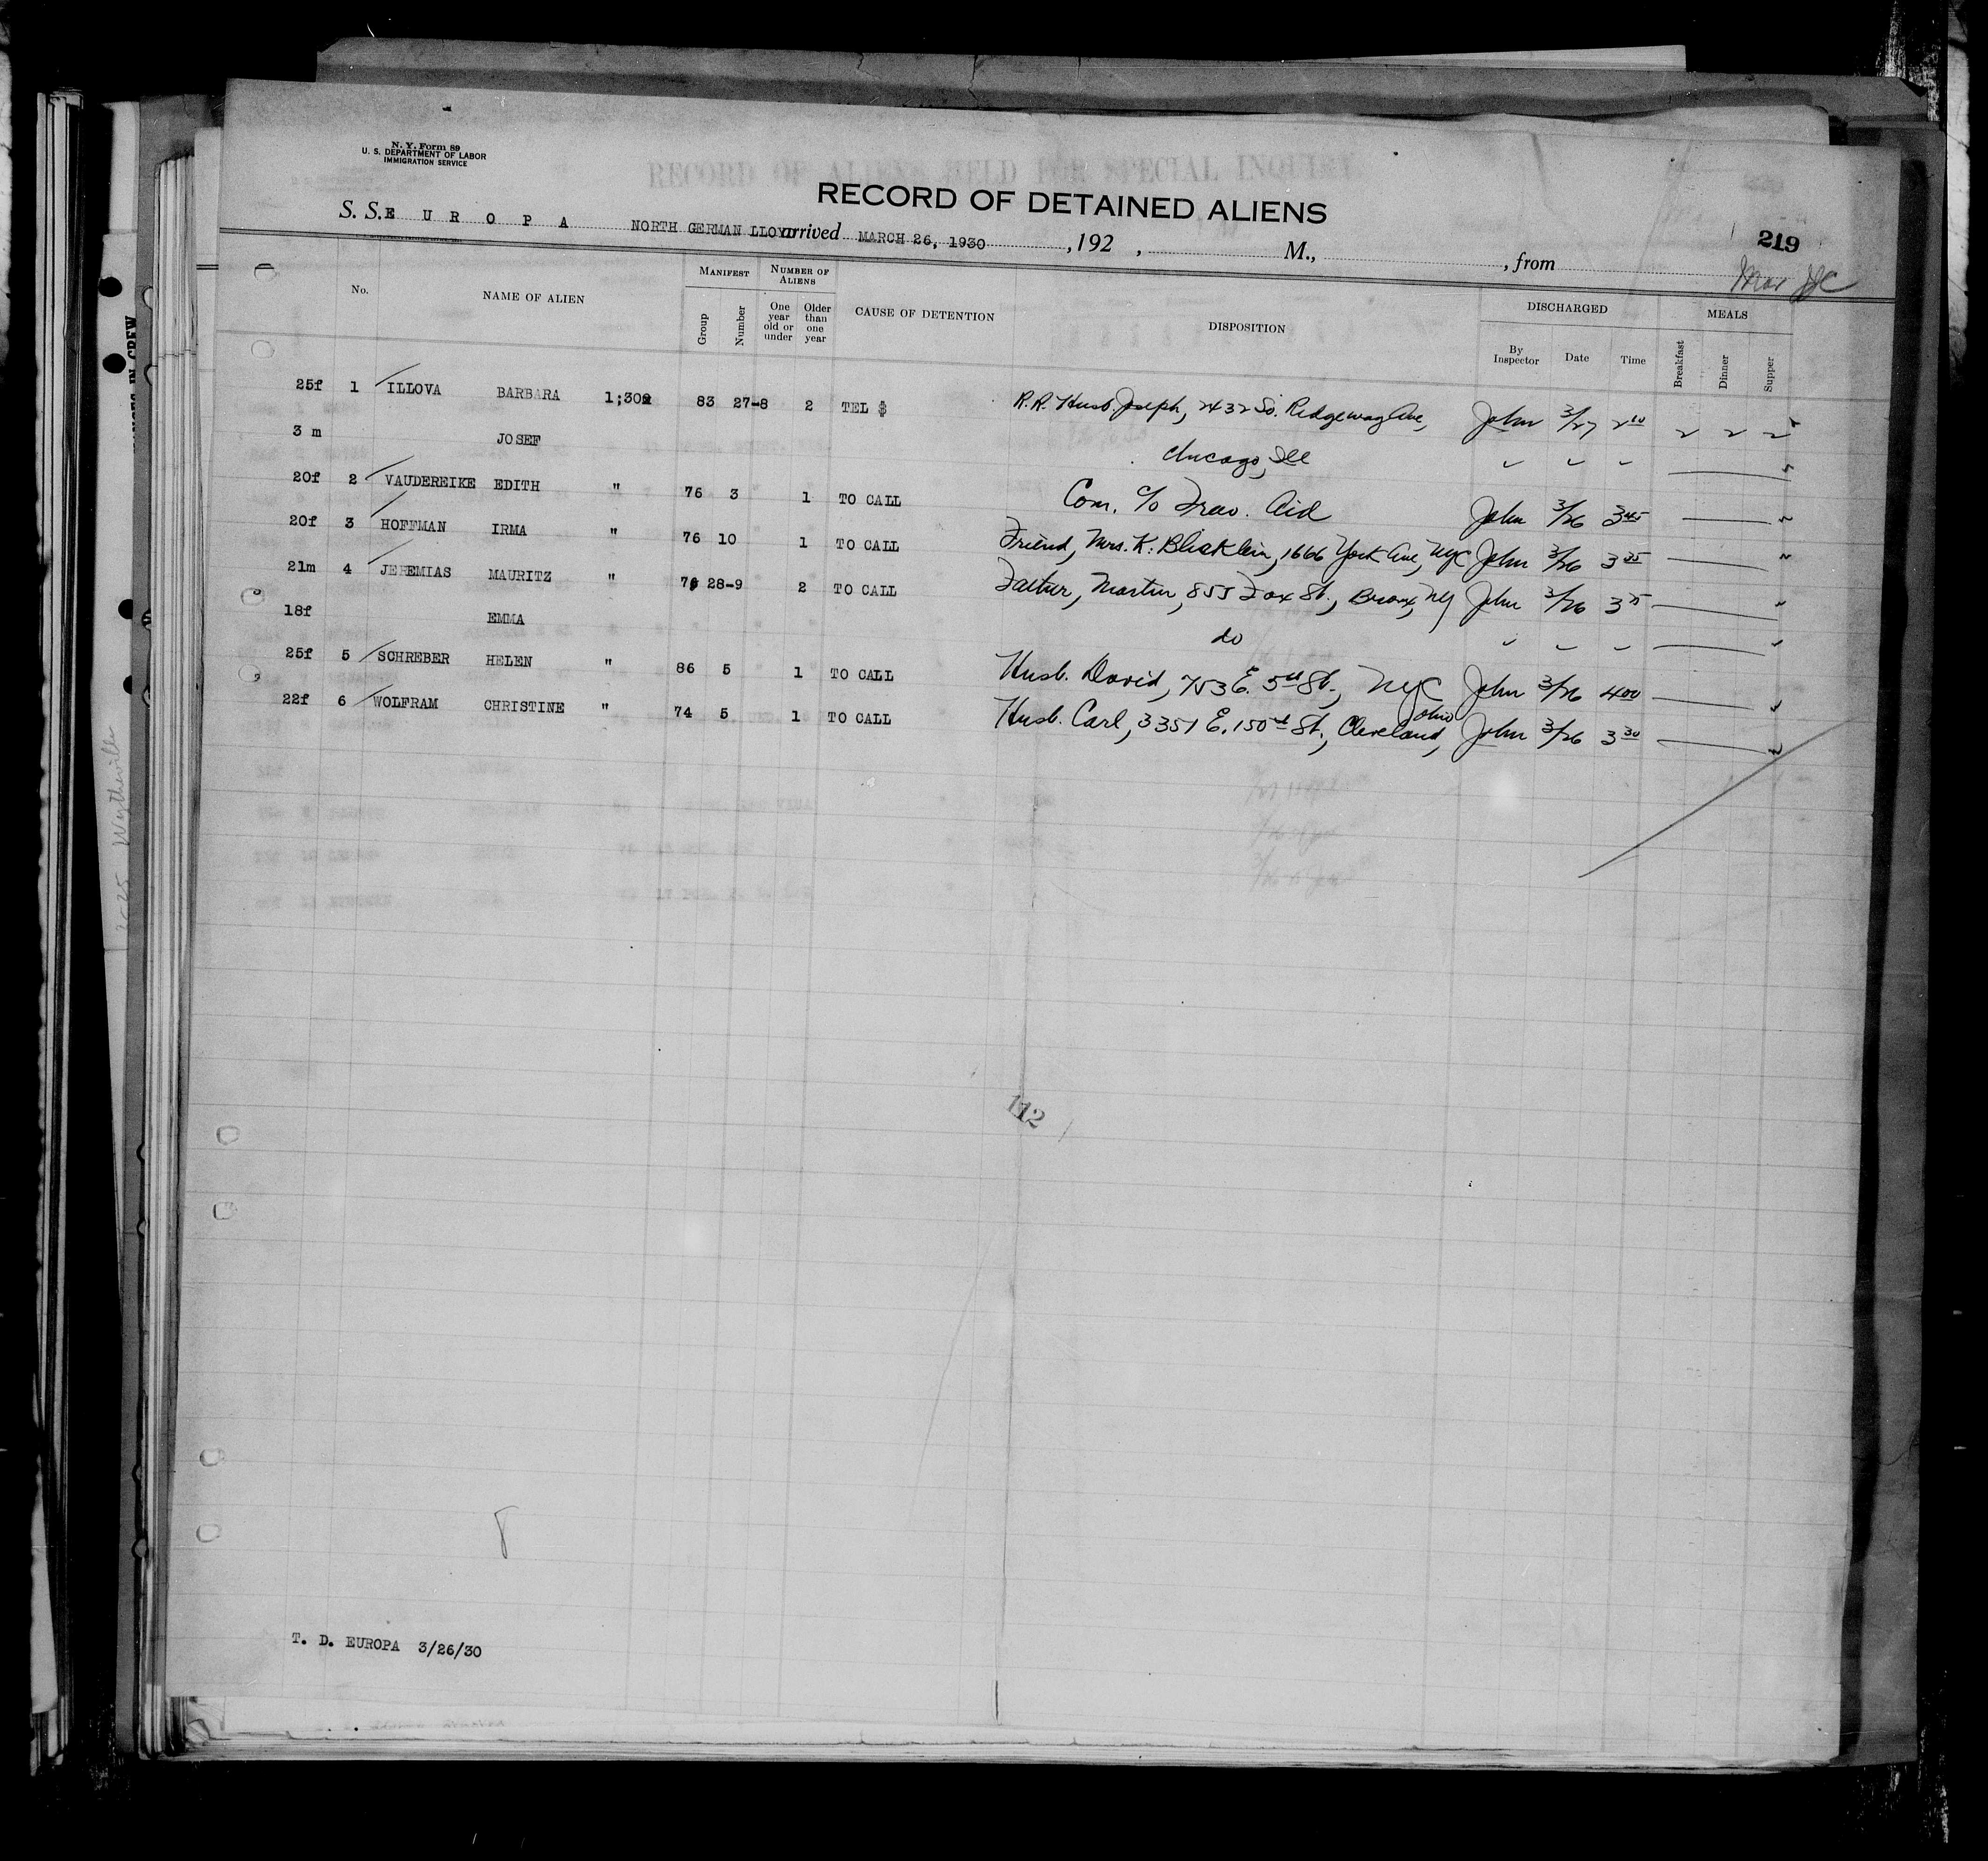 N. Y. Form 89
U. S. DEPARTMENT OF LABOR
IMMIGRATION SERVICE
RECORD OF ALIENS HELD FOR SPECIAL INQUIRY
RECORD OF DETAINED ALIENS
219
S. S. E U R O P A NORTH GERMAN LLOYD arrived MARCH 26, 1930 , 192 , M., , from
Mar
No. NAME OF ALIEN MANIFEST NUMBER OF ALIENS CAUSE OF DETENTION DISPOSITION DISCHARGED MEALS
Group Number One year old or under Older than one year By Inspector Date Time Breakfast Dinner Supper
25f 1 ILLOVA BARBARA 1;30 83 27-8 2 TEL $ R.R. Husb Joseph, 2432 So. Ridgeway Ave, John 3/27 2 10 2 2 2
3 m JOSEF Chicago, Ill
20f 2 VAUDEREIKE EDITH " 76 3 1 TO CALL Com. c/o Trav. Aid John 3/26 3 45
20f 3 HOFFMAN IRMA " 76 10 1 TO CALL Friend, Mrs. K. 1666 York Ave, NYC John 3/26 3 25
21m 4 JEREMIAS MAURITZ " 76 28-9 2 TO CALL Father, Martin, 855 Fox St., Bronx, NY John 3/26 3
18f EMMA do
25f 5 SCHREBER HELEN " 86 5 1 TO CALL Husb. David, 753 E. 5th St., NYC John 3/26 4 00
22f 6 WOLFRAM CHRISTINE " 74 5 1 TO CALL Husb. Carl, 3351 E. 150 St., Cleveland, Ohio John 3/26 3 30
112
T. D. EUROPA 3/26/30
Wytheville